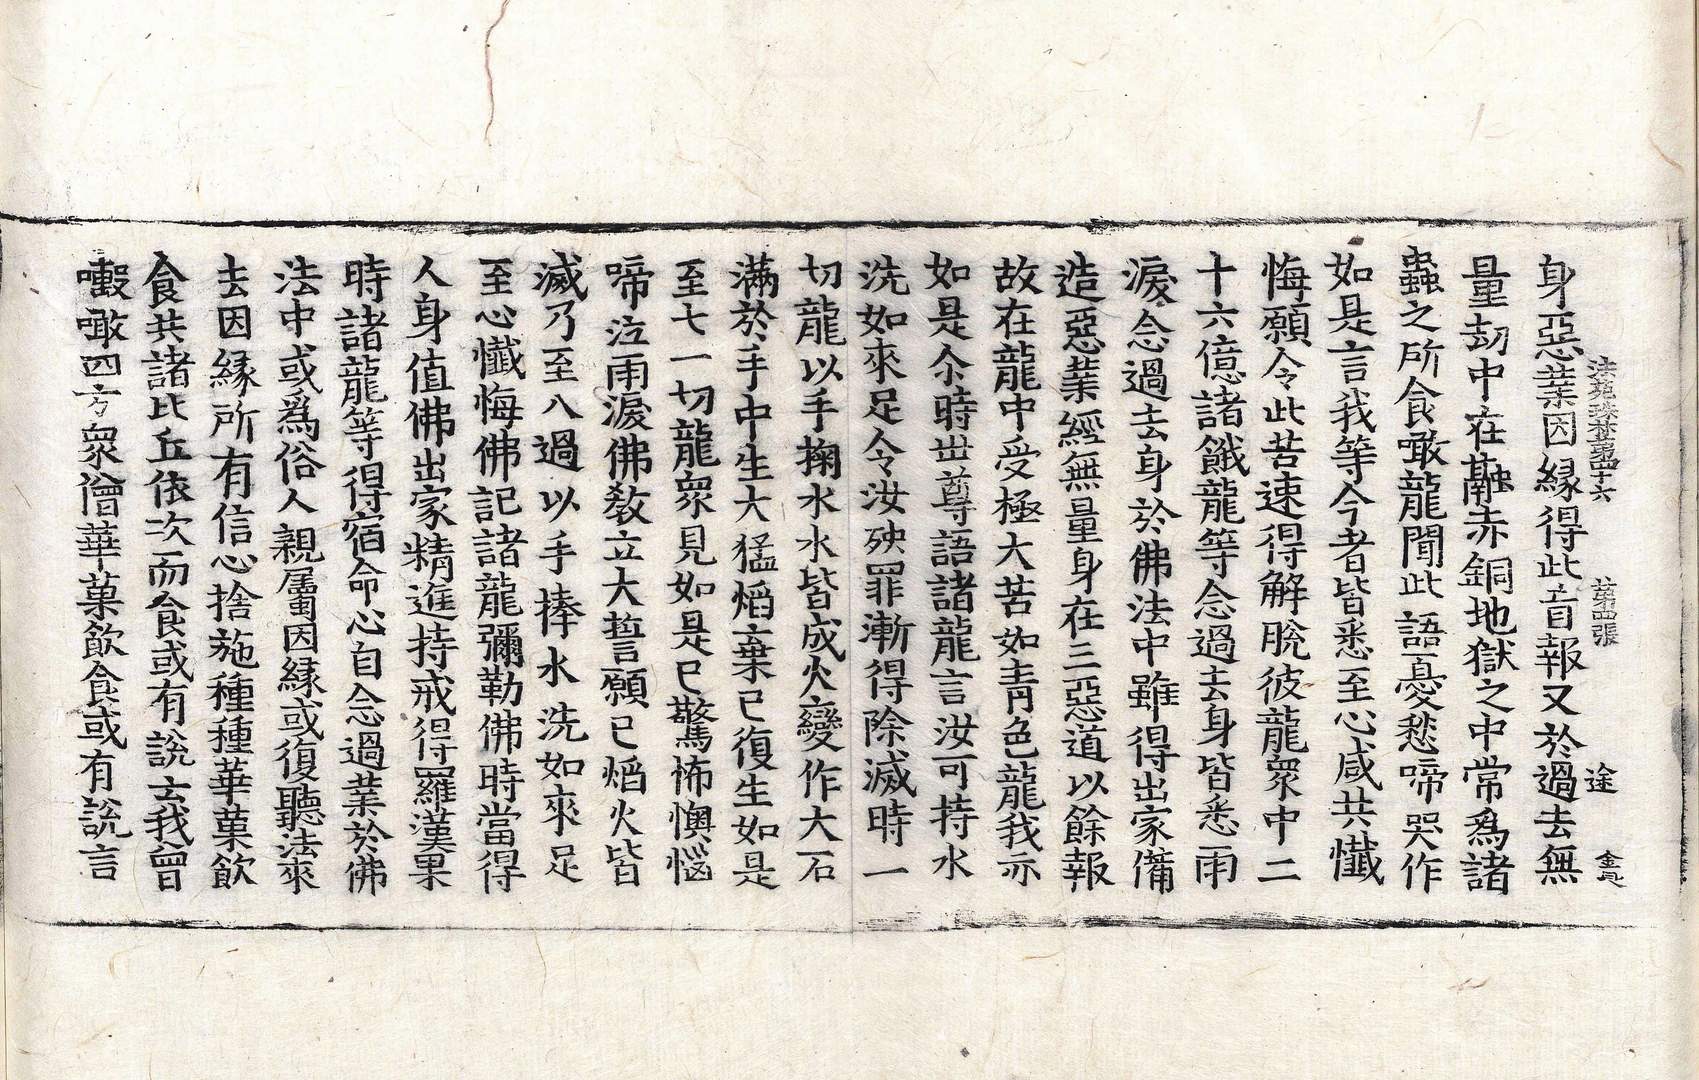 法苑珠林第四十六 第四張 途
身惡業因縁得此盲報又於過去無
量劫中在融赤銅地獄之中常爲諸
蟲之所食噉龍聞此語憂愁啼哭作
如是言我等今者皆悉至心咸共懺
悔願令此苦速得解脫彼龍衆中二
十六億諸餓龍等念過去身皆悉雨
淚念過去身於佛法中雖得出家備
造惡業經無量身在三惡道以餘報
故在龍中受極大苦如靑色龍我亦
如是尒時世尊語諸龍言汝可持水
洗如來足令汝殃罪漸得除滅時一
切龍以手掬水水皆成火變作大石
滿於手中生大猛焰棄已復生如是
至七一切龍衆見如是已驚怖懊惱
啼泣雨淚佛敎立大誓願已焰火皆
滅乃至八過以手捧水洗如來足
至心懺悔佛記諸龍彌勒佛時當得
人身値佛出家精進持戒得羅漢果
時諸龍等得宿命心自念過業於佛
法中或爲俗人親屬因縁或復聽法來
去因縁所有信心捨施種種華菓飮
食共諸比丘依次而食或有說言我曾
噉四方衆僧華菓飮食或有說言